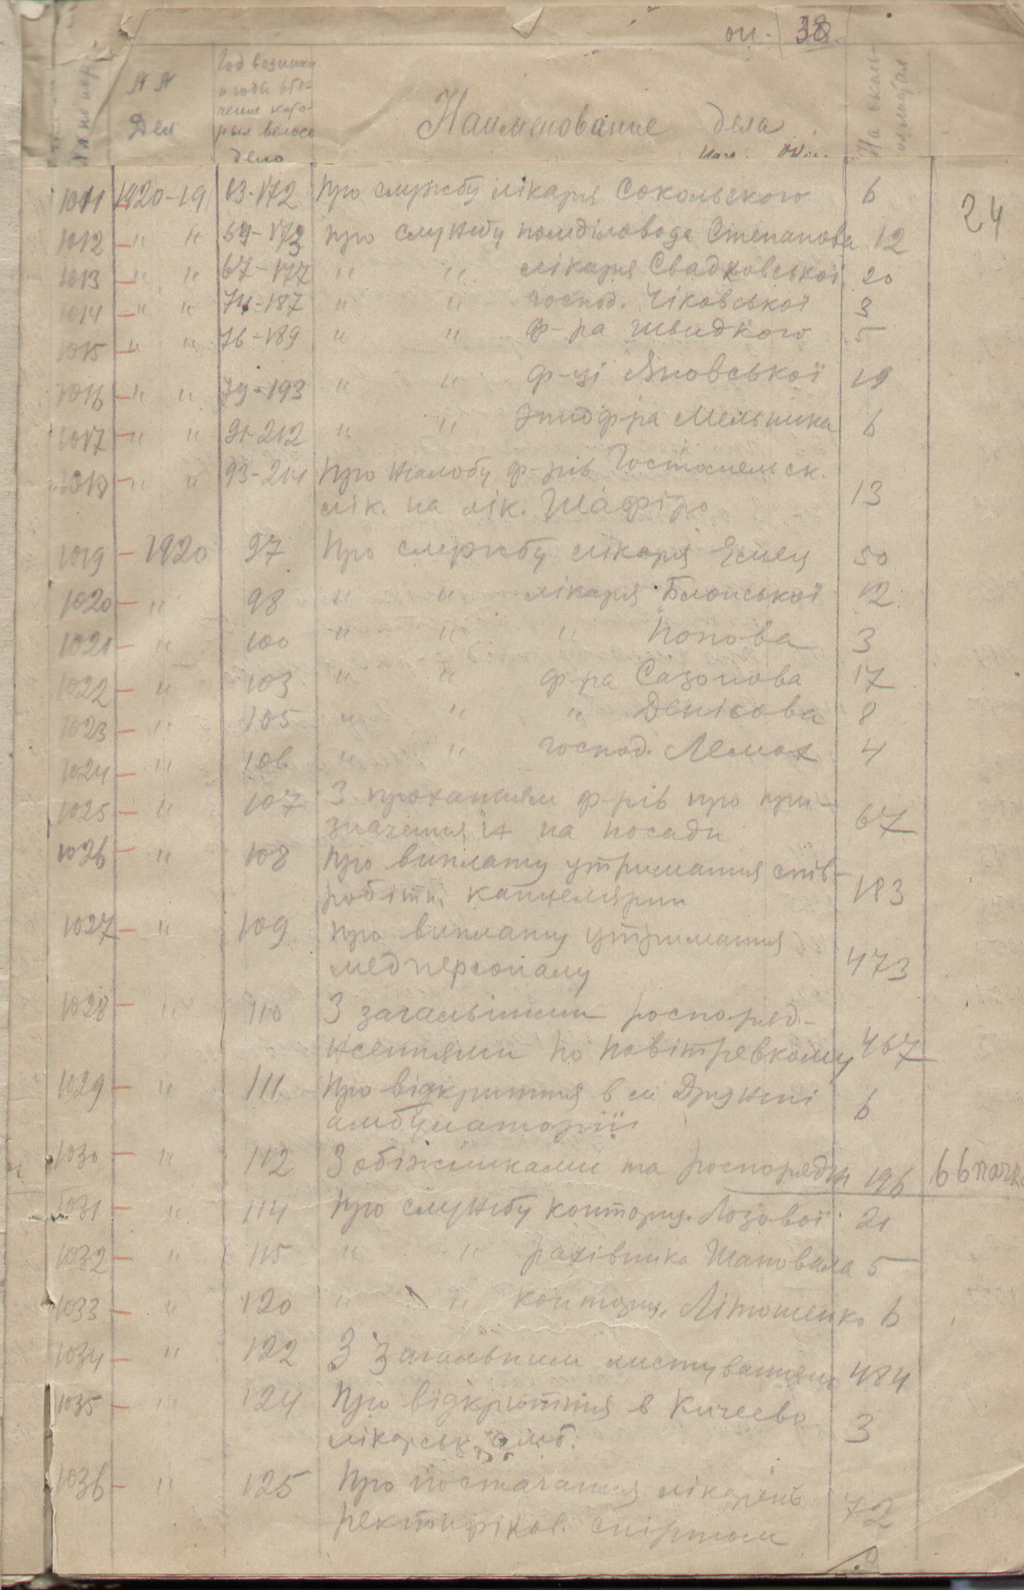 оп. 38.
24
№ №
Дел
Год возникн
дело
Наименование дела
1011 1920-19 13-172 Про службу лікаря Сокольского 6
1012 " " 64-173 Про службу помділовода Степанова 12
1013 " " 67-177 " " лікаря Свадковської 20
1014 " " 74-187 " " господ. Чіковської 3
1015 " " 76-189 " " ф-ра Швидкого 5
1016 " " 79-193 " " ф-ці Яновської 19
1017 " " 91-212 " " эпидф-ра Мельника 6
1018 " " 93-214 Про жалобу ф-рів Гостомельск.
лік. на лік. Шафіро 13
1019 1920 97 Про службу лікаря 50
1020 " 98 " " лікаря Блонської 12
1021 " 100 " " " Попова 3
1022 " 103 " " ф-ра Сазонова 17
1023 " 105 " " " Денісова 8
1024 " 106 " " господ. Лемах 4
1025 " 107 З проханням ф-рів про при-
значення їх на посади 67
1026 " 108 Про виплату утримання спів-
робітн. канцелярии 183
1027 " 109 Про виплату утримання
медперсоналу 473
1028 " 110 З загальними розпоряд-
женнями по повітревкому 467
1029 " 111 Про відкриття в м Дружні
амбулаторії 6
1030 " 112 З обіжниками та розпорядж 196 66
1031 " 114 Про службу контор. Лозової 21
1032 " 115 " " рахівника Шаповала 5
1033 " 120 " " контор. Літошенко 6
1034 " 122 З загальним листуванням 484
1035 " 124 Про відкриття в Кичеєво
лікарськ. амб. 3
1036 " 125 Про постачання лікарень
ректифіков. спіртом 72